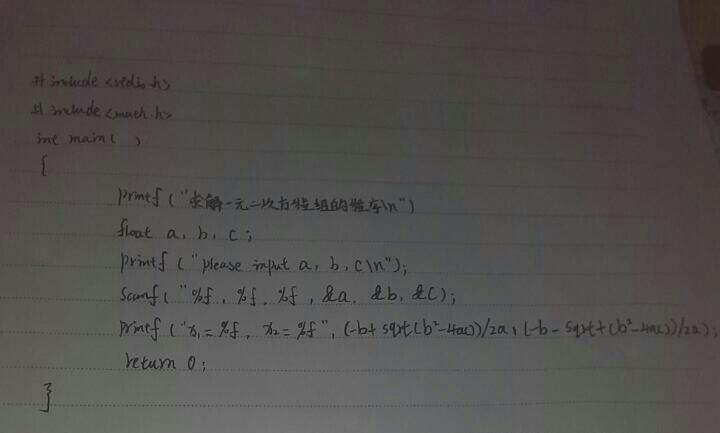 #include <stdio.h>
#include <math.h>
int main( )
{
printf("求解一元二次方程组的程序\n")
float a, b, c;
printf ("please input a, b, c\n");
scanf( "%f, %f, %f , &a, &b, &c);
printf ("x₁=%f, x₂=%f", (-b+sqrt(b²-4ac))/2a, (-b-sqrt+(b²-4ac))/2a);
return 0;
}